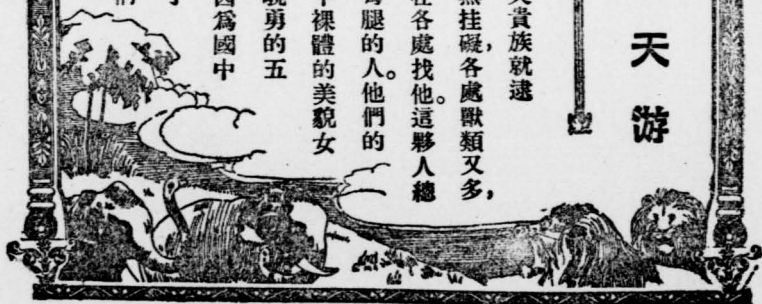 天游
貴族就逮
挂礙,各處獸類又多,
在各處找他。這夥人總
腿的人。他們的
裸體的美貌女
勇的五
因爲國中
們